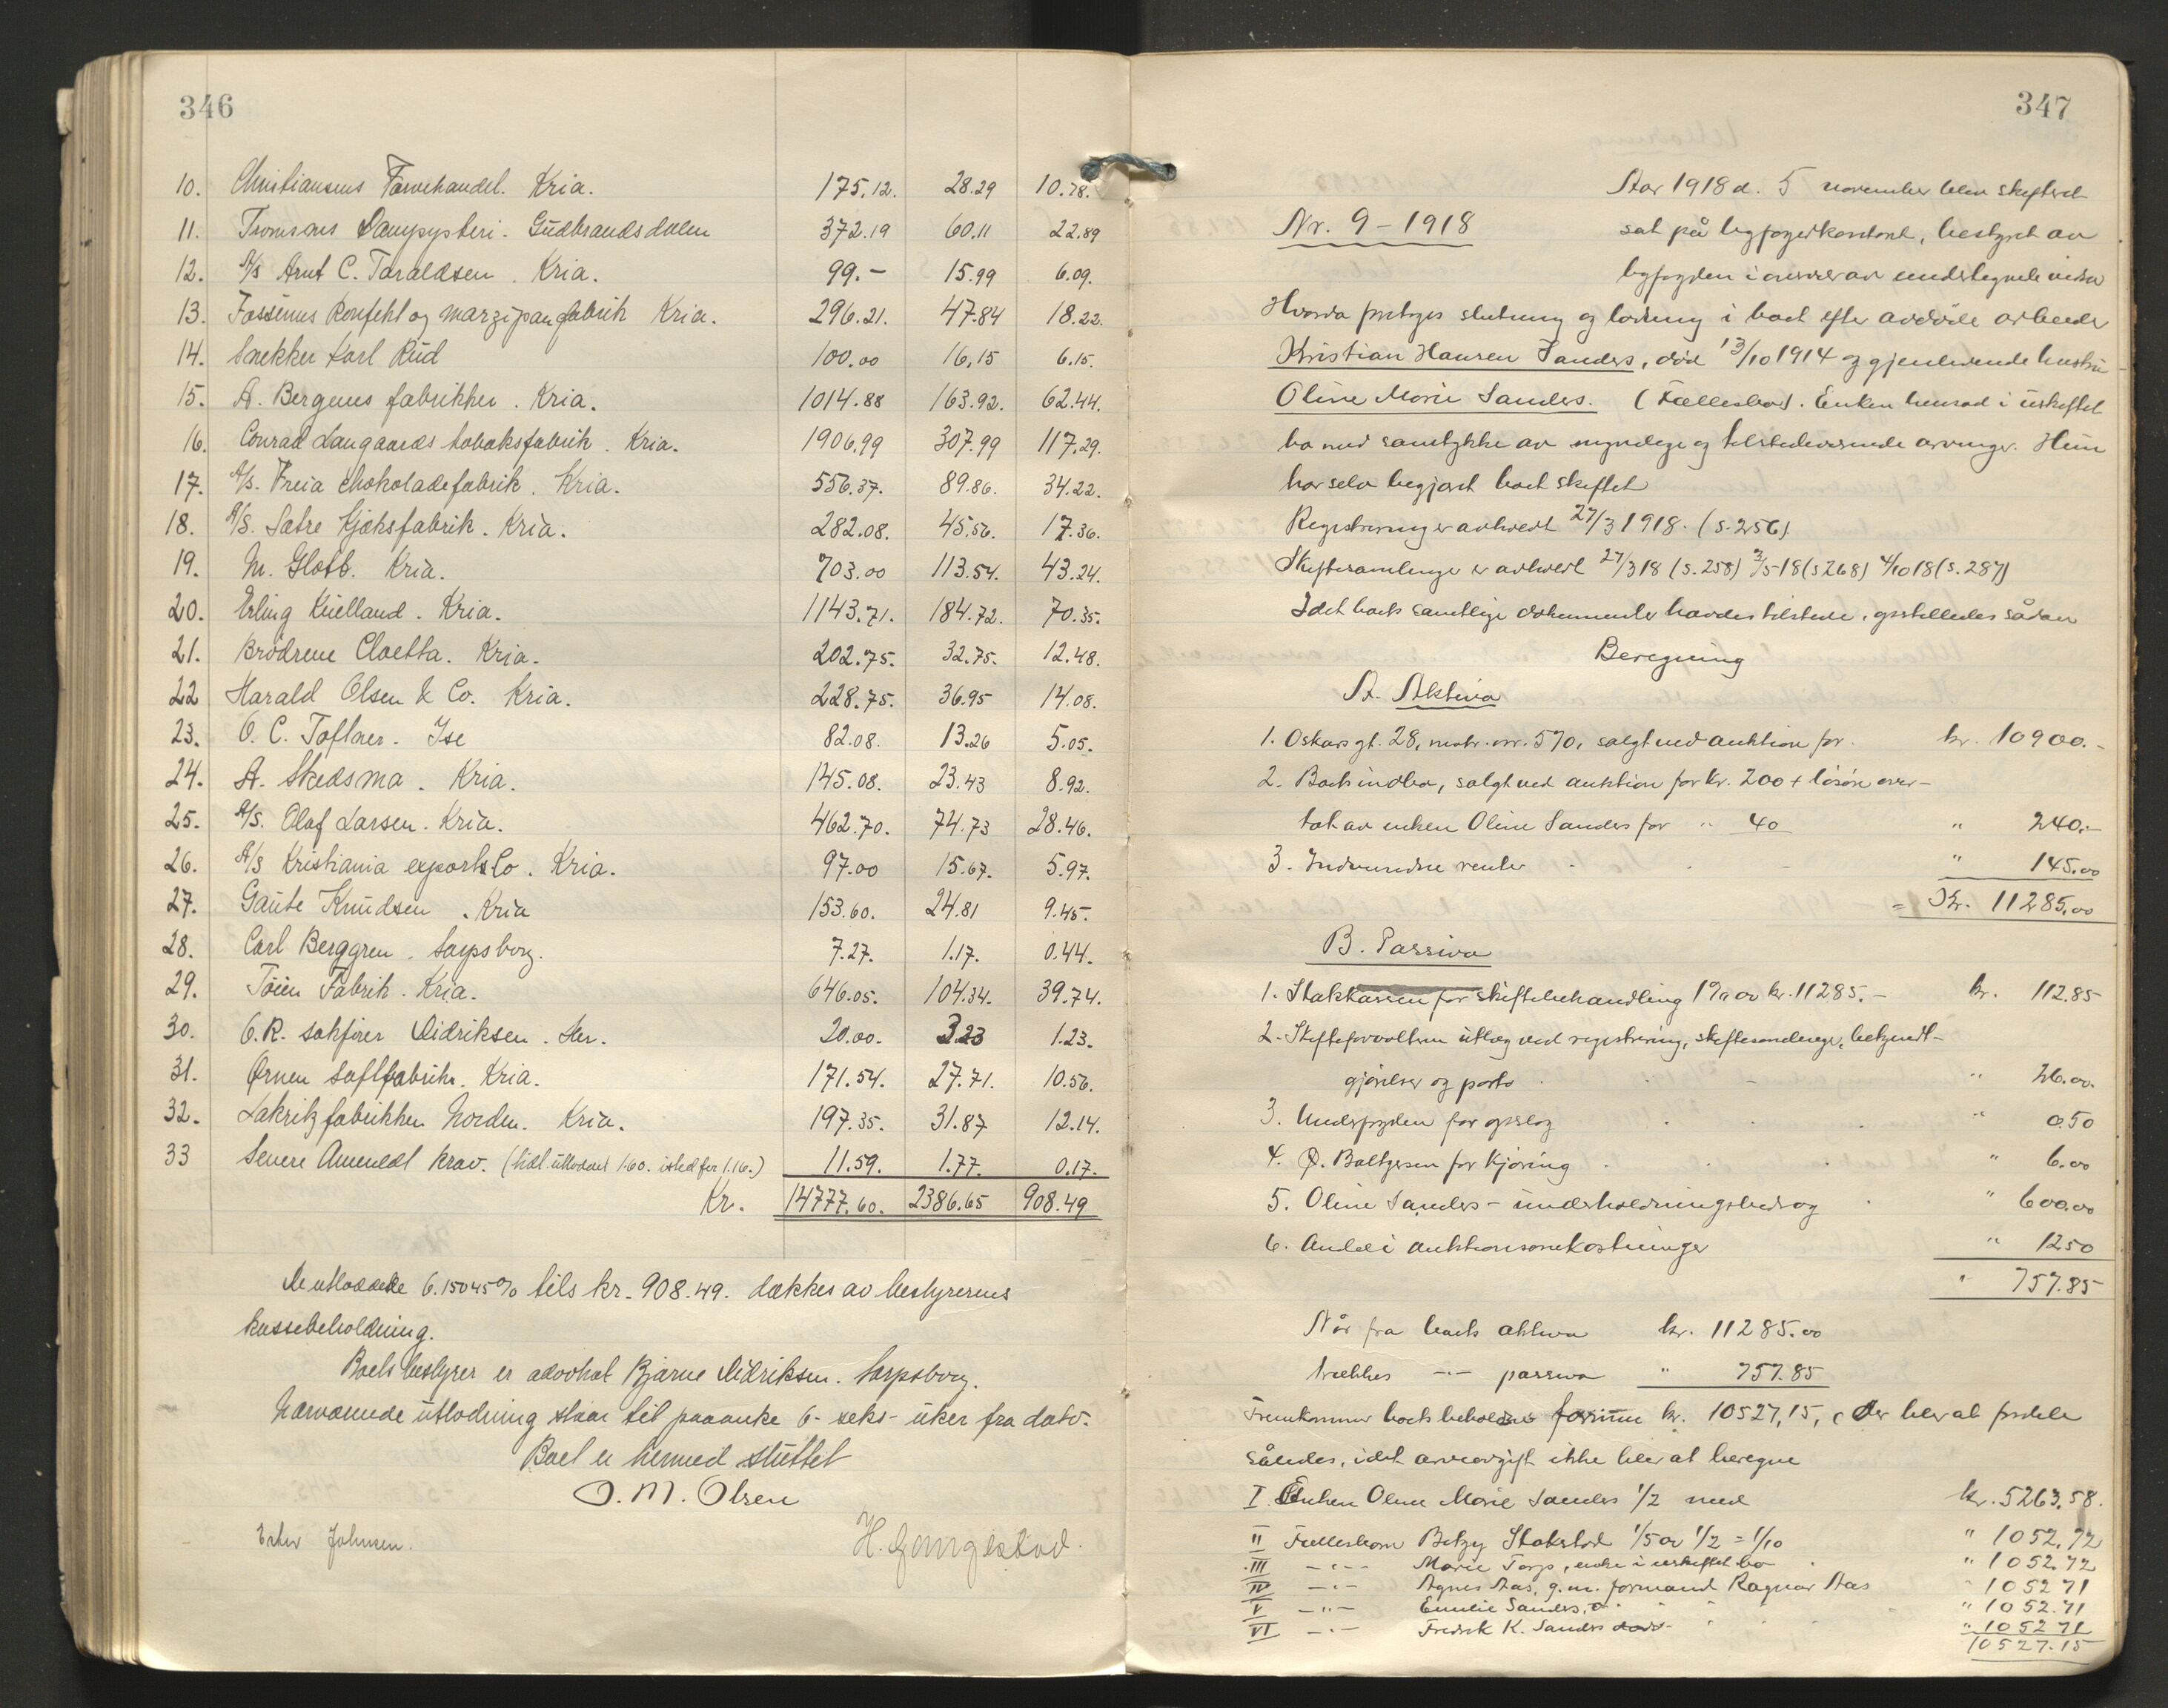 346
10. Christiansens Farvehandel. Kria. 175.12. 28.29 10.78.
11. Tromsnes Dampysteri. Gudbrandsdalen 372.19 60.11 22.89
12. A/s Arnt C. Taraldsen. Kria. 99.- 15.99 6.09.
13. Fossums Konfekt og marzipanfabrik Kria. 296.21. 47.84 18.22.
14. Snekker Karl Rud 100.00 16.15 6.15.
15. A. Bergenes fabrikker. Kria. 1014.88 163.92. 62.44.
16. Conrad Langaards tobaksfabrik. Kria. 1906.99 307.99 117.29.
17. A/s. Freia Chokoladefabrik. Kria. 556.37. 89.86. 34.22.
18. A/S. Sætre Kjæksfabrik. Kria. 282.08. 45.56. 17.36.
19. M. Glott. Kria. 703.00 113.54. 43.24.
20. Erling Kielland. Kria. 1143.71. 184.72. 70.35.
21. Brødrene Cloetta. Kria. 202.75. 32.75. 12.48.
22 Harald Olsen & Co. Kria. 228.75. 36.95 14.08.
23. O. C. Toftner. Ise 82.08. 13.26 5.05.
24. A. Skedsma. Kria. 145.08. 23.43 8.92.
25. A/S. Olaf Larsen. Kria. 462.70. 74.73 28.46.
26. A/s Kristiania exports Co. Kria. 97.00 15.67. 5.97.
27. Gaute Knudsen. Kria 153.60. 24.81 9.45.
28. Carl Berggren. Sarpsborg. 7.27. 1.17. 0.44.
29. Tøien Fabrik. Kria. 646.05. 104.34. 39.74.
30. O.R. sakfører Didriksen. Her. 20.00. 3.23 1.23.
31. Ørnen saftfabrik. Kria. 171.54. 27.71. 10.56.
32. Lakritzfabrikken Norden. Kria. 197.35. 31.87 12.14.
33 Senere Anmeldt krav. (tidl. utloddet 1.60. isted for 1.16.) 11.59. 1.77. 0.17.
Kr. 14777.60. 2386.65 908.49
De utloddede 6.15045% tils kr. 908.49. dækkes av bestyrerens
kassebeholdning.
Boets bestyrer er advokat Bjarne Didriksen. Sarpsborg.
Nærværende utlodning staar til paaanke 6- seks- uker fra dato.
Boet er hermed sluttet
O. M. Olsen
Ester Johnsen. H. Gangestad.
347
Aar 1918 d. 5 november blev skifteret
Nr. 9 – 1918 sat på byfogedkontoret, bestyret av
byfogden i overvær av undertegnede vidner
Hvorda foretoges slutning og lodning i boet efter avdøde arbeider
Kristian Hansen Sanders, død 13/10 1914 og gjenlevende hustru
Oline Marie Sanders. (Fællesbo). Enken hensad i uskiftet
bo med samtykke av myndige og tilstedeværende arvinger. Hun
har selv begjært boet skiftet
Registrering er avholdt 27/3 1918. (s. 256).
Skiftesamlinger er avholdt 27/3 18 (s. 258) 3/5-18 (s 268) 4/10 18 (s. 287)
Idet boets samtlige dokumenter havdes tilstede, opstilledes sådan
Beregning
A. Aktiva
1. Oskars gt. 28, matr. nr. 570, solgt ved auktion for kr. 10900.-
2. Boets indbo, solgt ved auktion for kr. 200 + løsøre over-
tat av enken Oline Sanders for " 40 " 240.-
3. Indvundne renter " 145.00
= Kr. 11285.00
B. Passiva
1. Statskassen for skiftebehandling 1% av kr. 11285.- kr. 112.85
2. Skifteforvalteren utlæg ved registrering, skiftesamlinger, bekjendt-
gjørelser og porto " 26.00.
3. Underfogden for opslag " 0.50
4. O. Baltzersen for kjøring " 6.00
5. Oline Sanders - underholdningsbidrag " 600.00
6. Andel i auktionsomkostninger " 12.50
" 757.85
Når fra boets aktiva kr. 11285.00
trækkes -"- passiva " 757.85
Fremkommer boets beholdne formue kr. 10527,15, der blev at fordele
således, idet arveavgift ikke blev at beregne
I. Enken Oline Marie Sanders 1/2 med kr. 5263.58.
II Fællesbarn Betzy Stokstad 1/5 av 1/2 = 1/10 " 1052.72
III -"- Marie Torp, enke i uskiftet bo " 1052.72
IV -"- Agnes Aas, g.m. formand Ragnar Aas " 1052 71
V -"- Emilie Sanders, " 1052.71
VI -"- Fredrik K. Sanders " 1052 71
10527.15